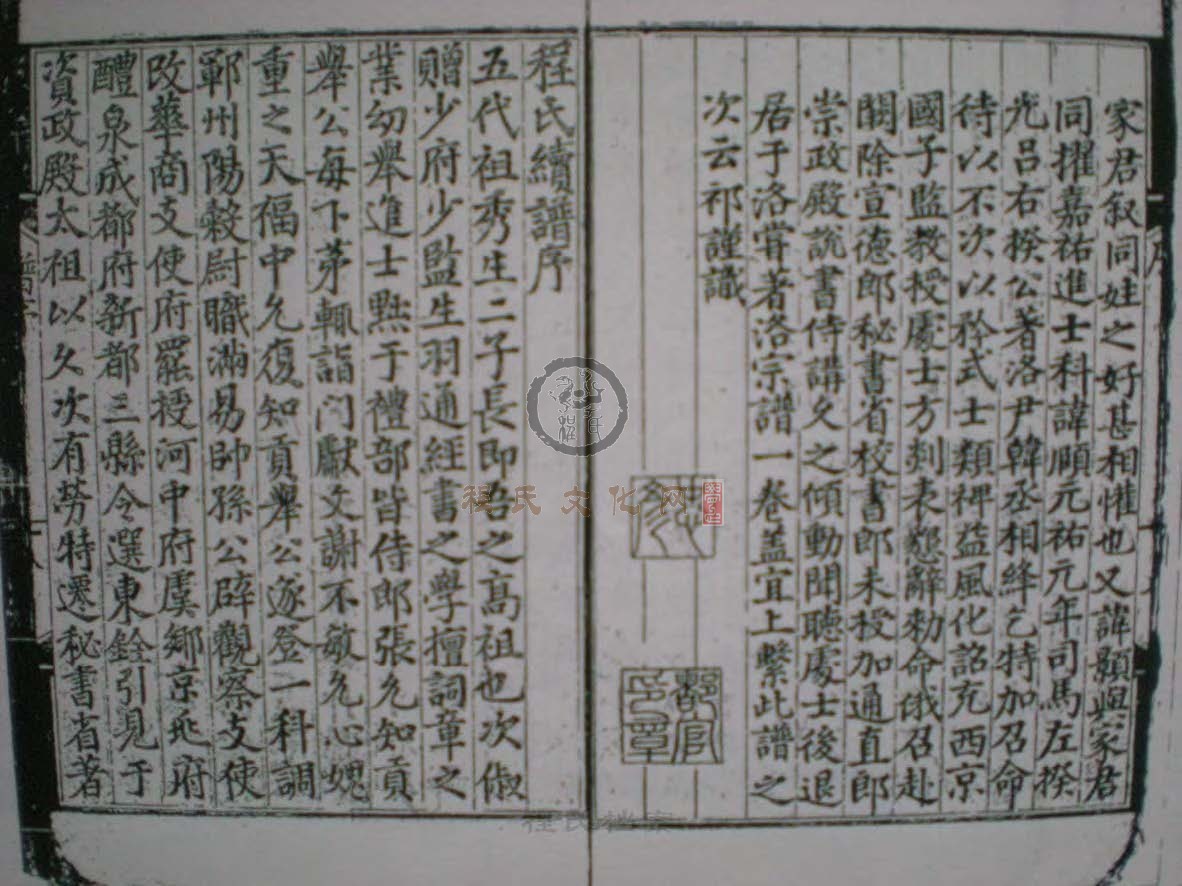 家君叙同姓之好甚相懽也又諱顥與家君
同擢嘉祐進士科諱頤元祐元年司馬左揆
光呂右揆公著今尹韓丞相絳乞特加召命
待以不次以矜式士類裨益風化詔充西京
國子監教授處士方剡表懇辭勑命俄召赴
闕除宣德郎秘書省校書郎未授加通直郎
崇政殿說書侍講久之傾動聞聽處士後退
居于洛嘗著洛宗譜一卷盖宜上繫此譜之
次云祁謹識
都官
印章
程氏續譜序
五代祖秀生二子長即吾之高祖也次俶
贈少府少監生羽通經書之學擅詞章之
業幼舉進士黜于禮部皆侍郎張允知貢
舉公每下苐輒詣門獻文謝不敏允心媿
重之天福中允復知貢舉公遂登一科調
鄆州陽榖尉職滿易帥孫公辟觀察支使
改華商支使府罷授河中府虞鄉京兆府
醴泉成都府新都三縣令選東銓引見于
資政殿太祖以久次有勞特遷秘書省著
程氏文化网